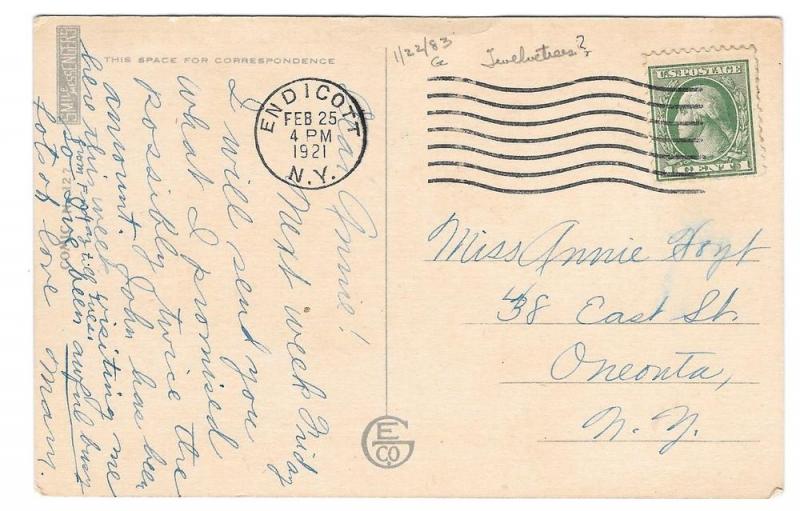 THIS SPACE FOR CORRESPONDENCE
SMILE MESSENGERS
COMIC
122
Dear Annie!
Next week Friday
I will send you
what I promised
possibly twice the
amount. John has been
here this week visiting me
from Friday till Tues.
So I've been awful busy
Lots of love Mam.
ENDICOTT
FEB 25
4 PM
1921
N.Y.
1/22/83
U.S. POSTAGE
1 CENT 1
Miss Annie Hoyt
38 East St.
Oneonta,
N. Y.
E G CO